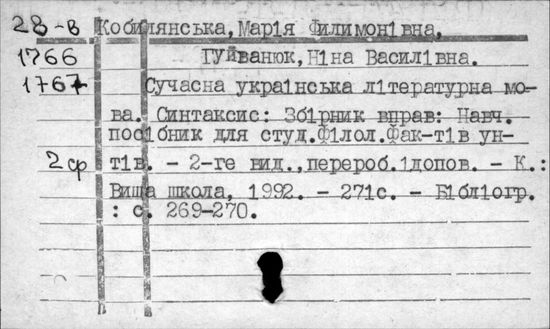 28-в Кобилянська, Марія Филимонівна,
1766 Гуйванюк, Ніна Василівна.
1767 Сучасна українська літературна мо-
ва. Синтаксис: Збірник вправ: Навч.
посібник для студ.філол.Фак-тів ун-
2ср тів. - 2-ге вид.,перероб.ідопов. - К.:
Вища школа, 1992. - 271с. - Бібліогр.
: с. 269-270.